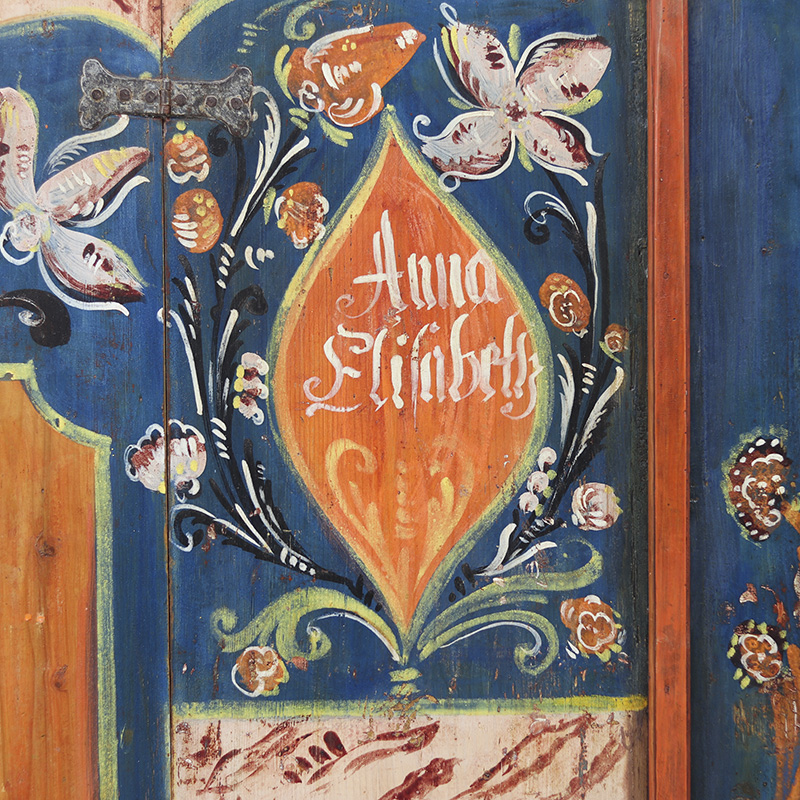 Anna
Elisabeth